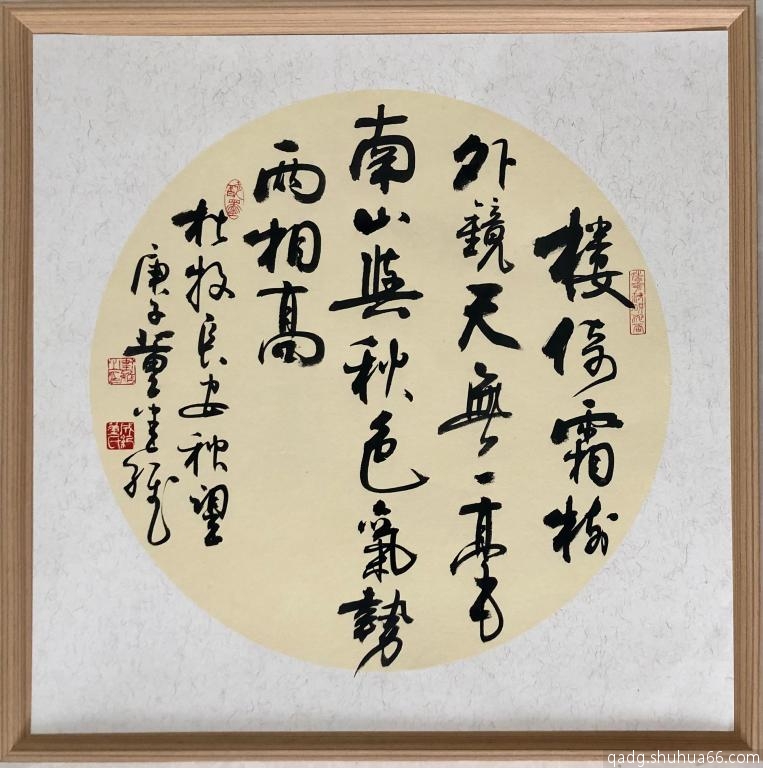 楼倚霜树
外鏡天無一毫
南山與秋色氣勢
兩相高
杜牧长安秋望
庚子董
qadg.shuhua66.com